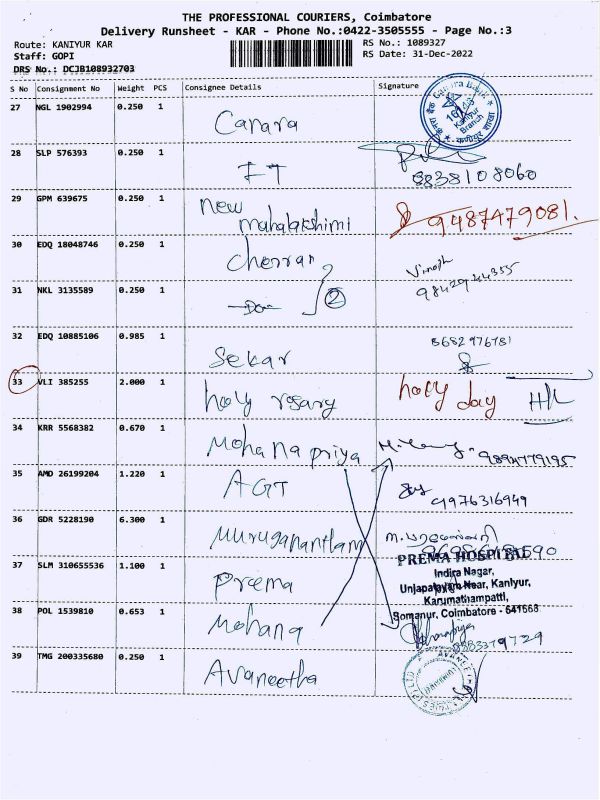 THE PROFESSIONAL COURIERS, Coimbatore
Delivery Runsheet - KAR - Phone No.:0422-3505555 - Page No.:3
Route: KANIYUR KAR
RS No.: 1089327
Staff: GOPI
RS Date: 31-Dec-2022
DRS No.: DCJB108932703
S No Consignment No Weight PCS Consignee Details Signature
27 NGL 1902994 0.250 1 Canara
Canara Bank
Kaniyur
Branch
28 SLP 576393 0.250 1 IT
8838108060
29 GPM 639675 0.250 1 New
mahalakshimi 9487479081.
30 EDQ 18048746 0.250 1 Cherran
Vinoth
9842944355
31 NKL 3135589 0.250 1 -Do- 2
32 EDQ 10885106 0.985 1 Sekar
8682976781
33 VLI 385255 2.000 1 holy rosary holy day
34 KRR 5568382 0.670 1 Mohanapriya
9894779195
35 AMD 26199204 1.220 1 AGT
9976316949
36 GDR 5228190 6.300 1 Muruganantham
37 SLM 310655536 1.100 1 Prema
PREMA HOSPITAL
Indira Nagar,
Unjapalayam Near, Kaniyur,
Karumathampatti,
Somanur, Coimbatore - 641668
38 POL 1539810 0.653 1 Mohana
39 TMG 200335680 0.250 1 Avaneetha